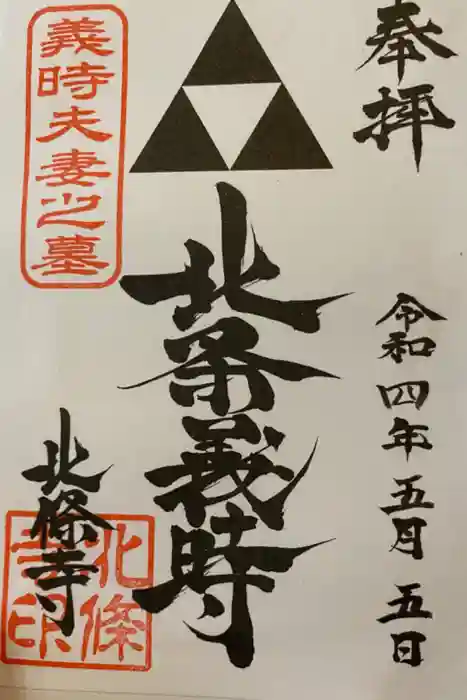 奉拝
令和四年五月五日
北条義時
義時夫妻之墓
北條寺
北條
寺印